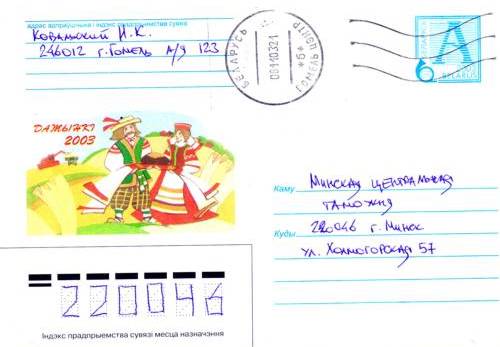 адрас адпраўшчыка і індэкс прадпрыемства сувязі
Ковальский И.К.
246012 г.Гомель а/я 123
БЕЛАРУСЬ
081103 21
ПОШТА
*б*
ГОМЕЛЬ
А
БЕЛАРУСЬ
BELARUS
ДАЖЫНКІ
2003
Каму Минская центральная
таможня
Куды 220046 г. Минск
ул. Холмогорская 57
220046
Індэкс прадпрыемства сувязі месца назначэння